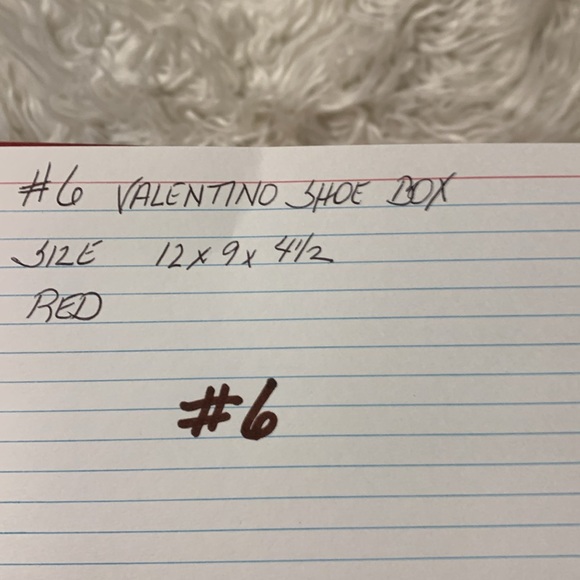 #6 VALENTINO SHOE BOX
SIZE 12 x 9 x 4 1/2
RED
#6